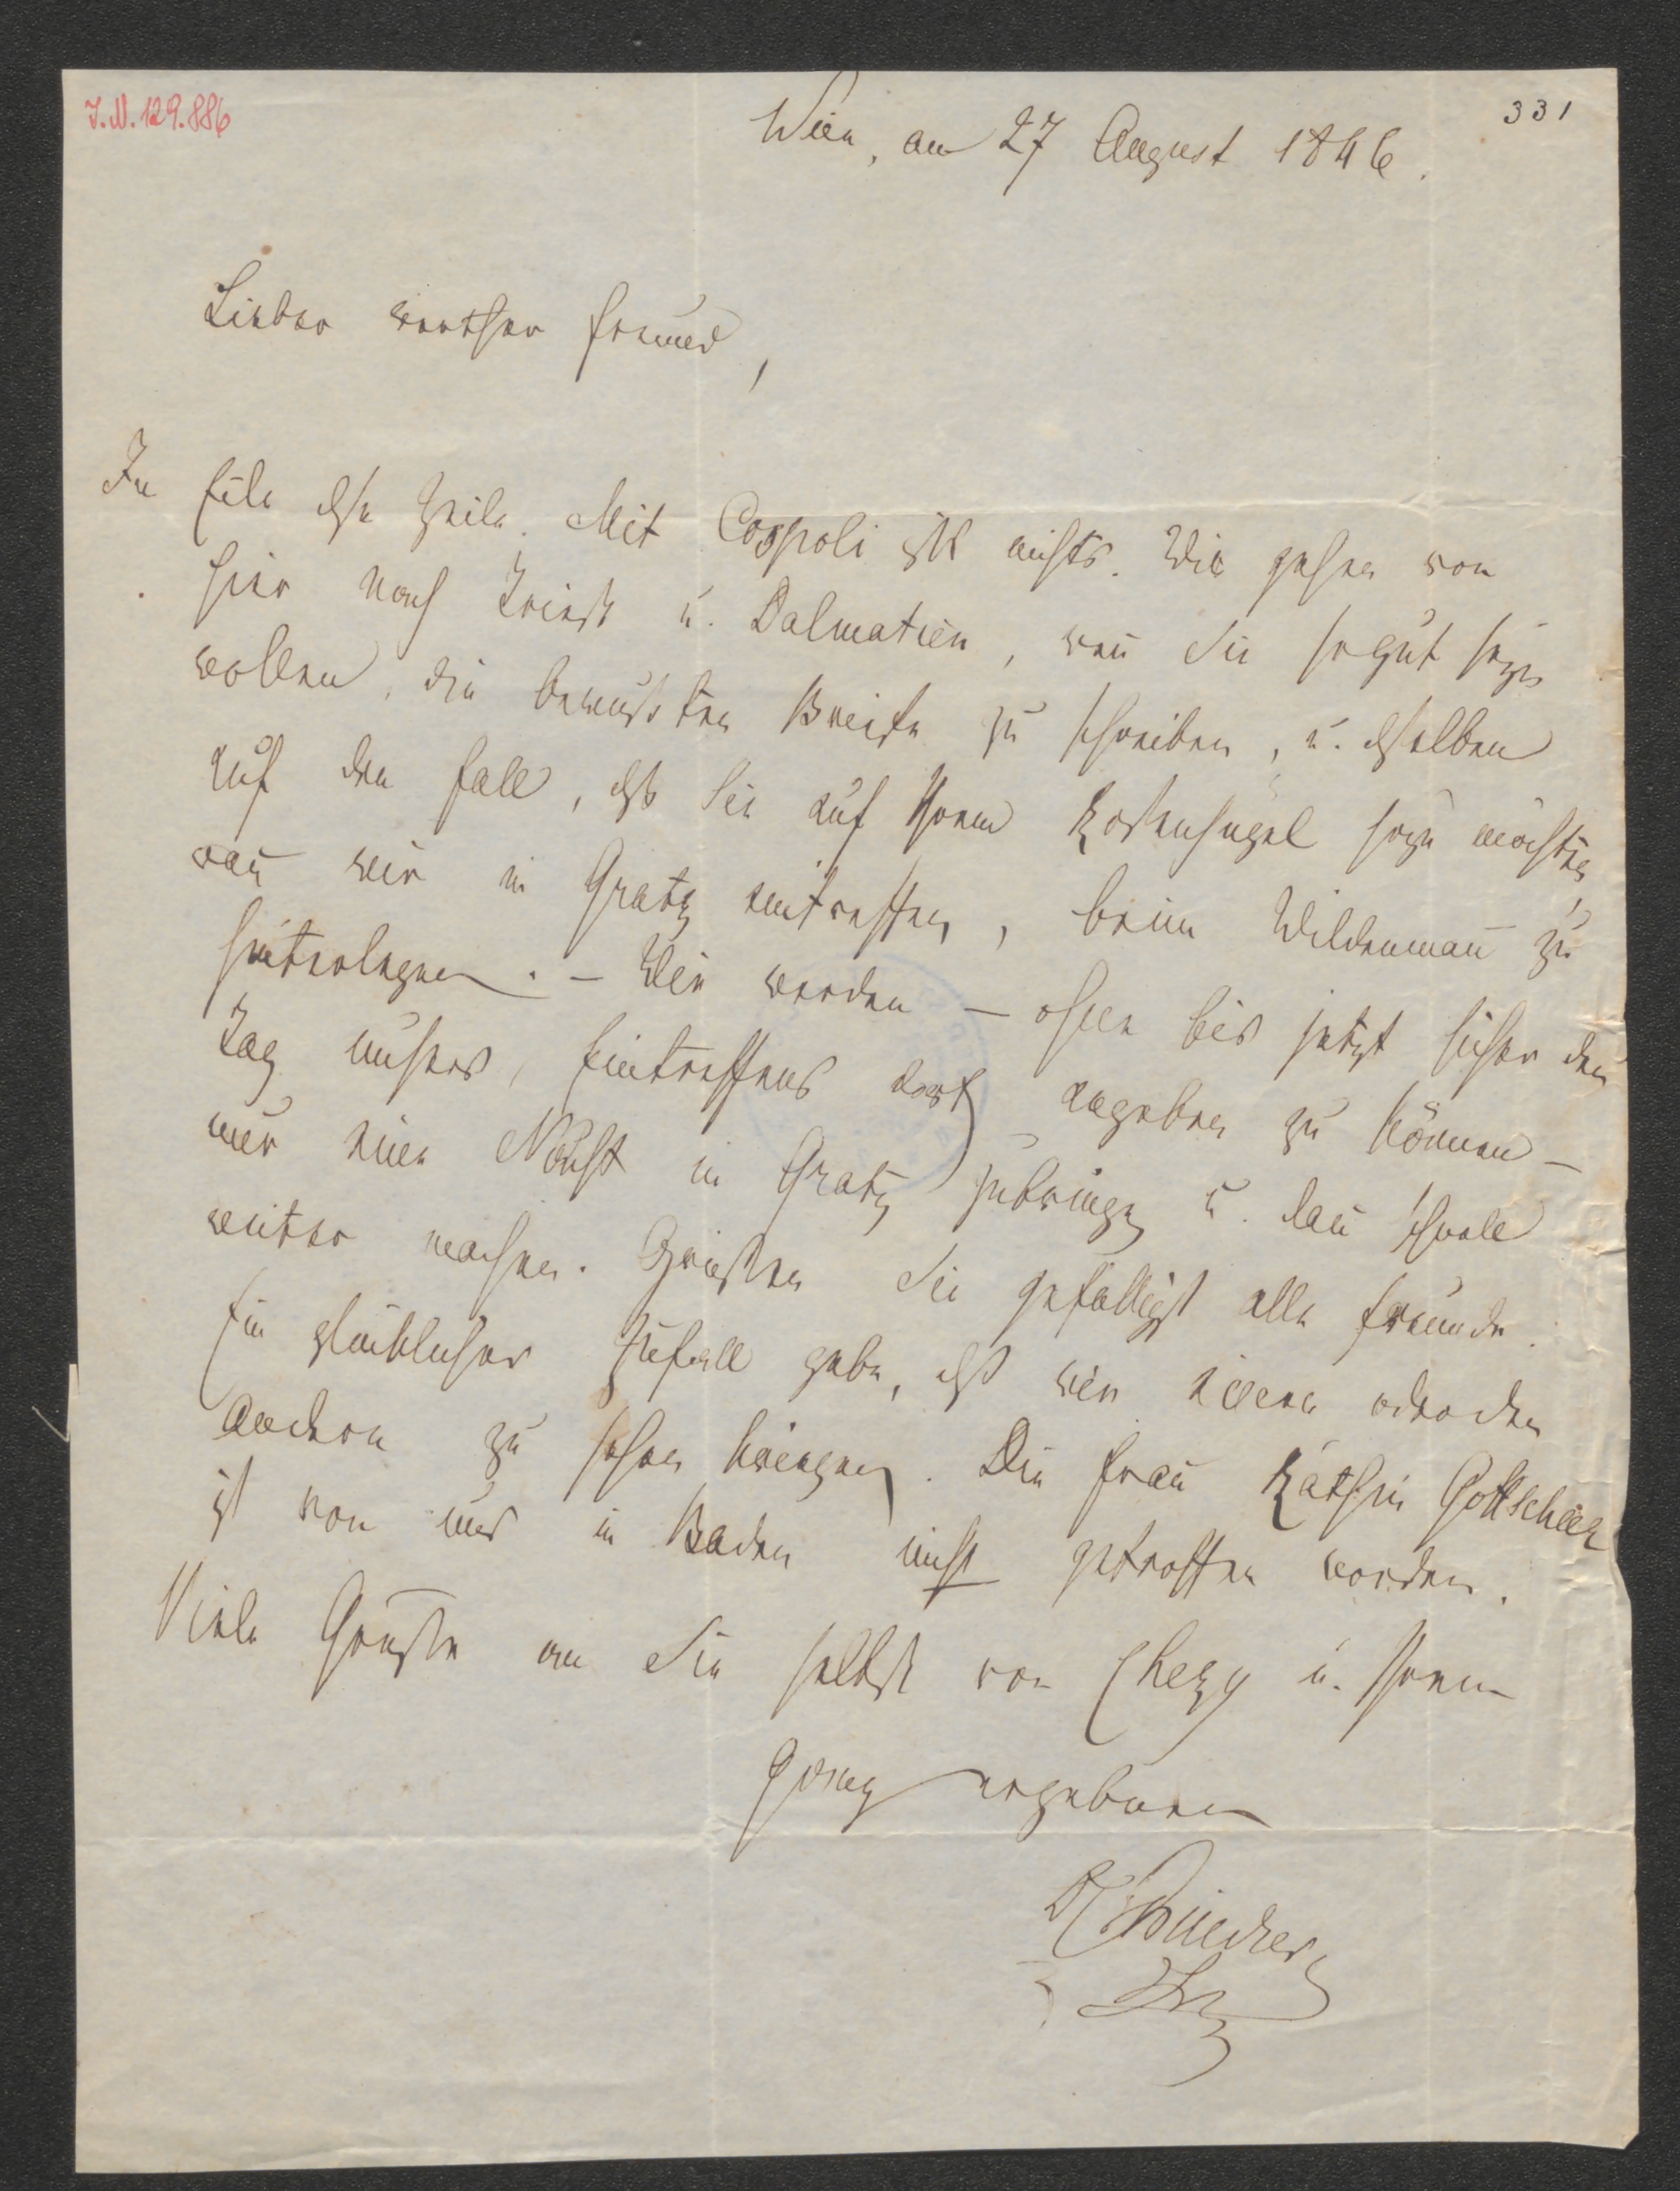 I.N. 129.886
331
Wien, am 27 August 1846.
Lieber werther Freund,
In Eile dse Zeile. Mit Cospoli ists nichts. Wir gehen von
hier nach Triest u. Dalmatien, wen̄ Sie so gut seyn
wollen, die bewußten Briefe zu schreiben, u. dselben
auf den Fall, dß Sie auf Ihrem Rosenhügel seyn möchten,
wan̄ wir in Gratz eintreffen, beim Wildenman̄ zu
hinterlegen. – Wir werden – ohne bis jetzt sicher den
Tag unsers Eintreffens dort angeben zu können –
nur eine Nacht in Gratz zubringen u. dan̄ schnell
weiter machen. Grüßen Sie gefälligst alle Freunde.
Ein glücklicher Zufall gebe, dß wir einen oder den
andern zu sehen kriegen. Die Frau Räthin Gottscheer
ist von uns in Baden nicht getroffen worden.
Viele Grüße an Sie selbst von Chezy u. Ihrem
ganz ergebenen